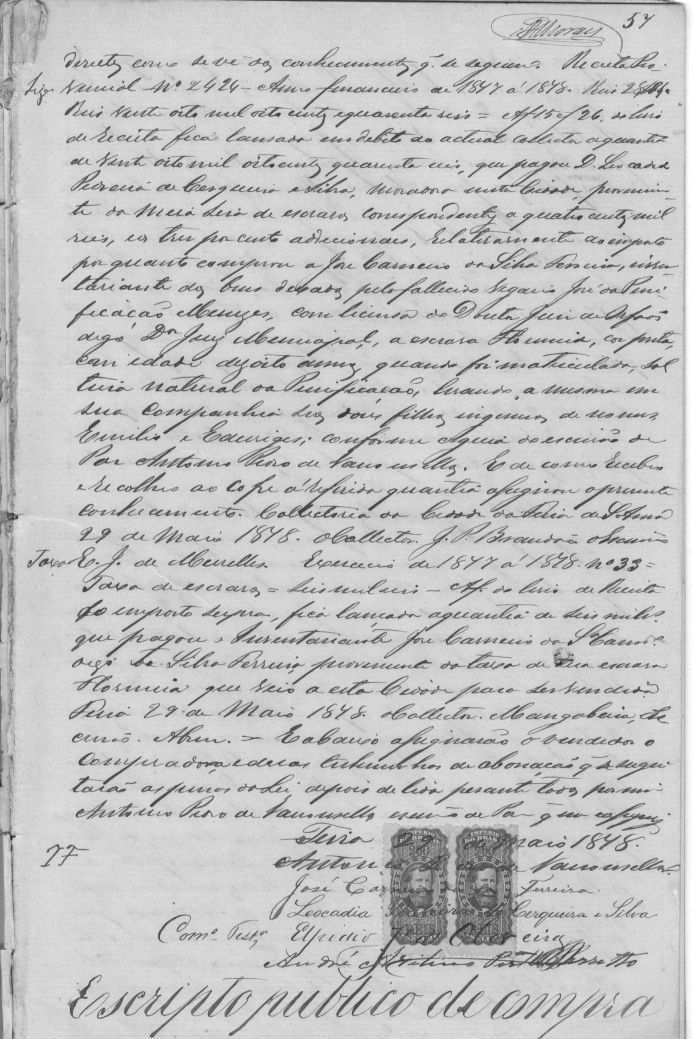 57
direitos como se vê dos conhecimentos q. se seguem. Receita Pro-
Siza vincial Nº 2424 - Anno financeiro de 1877 á 1878. Reis
Reis vinte oito mil oito centos e quarenta reis = Af 15 of 26, do livro
de receita fica lansada em debito do actual collector a quantia
de vinte oito mil oitocentos quarenta reis, que pagou D. Leocadia
Pereira de Cerqueira e Silva, moradora nesta Cidade, provinien-
te da meia siza de escravos correspondente a quatrocentos mil
reis, e os tres por cento addecionaes, relativamente ao imposto
por quanto comprou a José Carneiro da Silva Ferreira, inven-
tariante dos bens deixados pelo fallecido José da Puri-
ficação Menezes, com licensa do Doutor Juiz de Orfaõs
digo Dr. Juiz Municipal, a escrava Florencia, cor preta,
com idade dezoito annos, quando foi matriculada, sol-
teira natural da Purificação, levando a mesma em
sua companhia seus dois filhos ingenuos de nomes
Emilio e Eduviges; conforme a guia do escrivão de
Paz Antonio Pedro de Vasconsellos. E de como recebeo
e recolheo ao cofre a referida quantia assignou o presente
conhecimento. Collectoria da Cidade da Feira de S. Anna
29 de Maio 1878. O Collector J. P. Brandão o escrivão
Taxa E. J. de Meirelles Exercicio de 1877 á 1878. nº 33 =
Taxa de escravos = seis mil reis - Af. do livro de receita
do imposto supra, fica lansada a quantia de seis mil rs.
que pagou o Inventariante José Carneiro da
digo da Silva Ferreira proveniente da taxa de sua escrava
Florencia que veio a esta Cidade para ser vendida
Feira 29 de Maio 1878. O Collector. Mangabeira, Es-
crivão. Abreu. = E abaixo assignarão o vendedor o
compradora e duas testemunhas de abonação q. se sugei-
tarão as penas da Lei, depois de lida perante todos, por mim
Antonio Pedro de Vasconsellos escrivão de Paz q. o escrevi
Feira 29 de Maio 1878.
Antonio Pedro de Vasconsellos
IMPERIO DO BRASIL IMPERIO DO BRASIL
José Carneiro da Silva Ferreira.
Leocadia Pereira de Cerqueira e Silva
Como Testa. Elpidio Oliveira
André
Escripto publico de compra